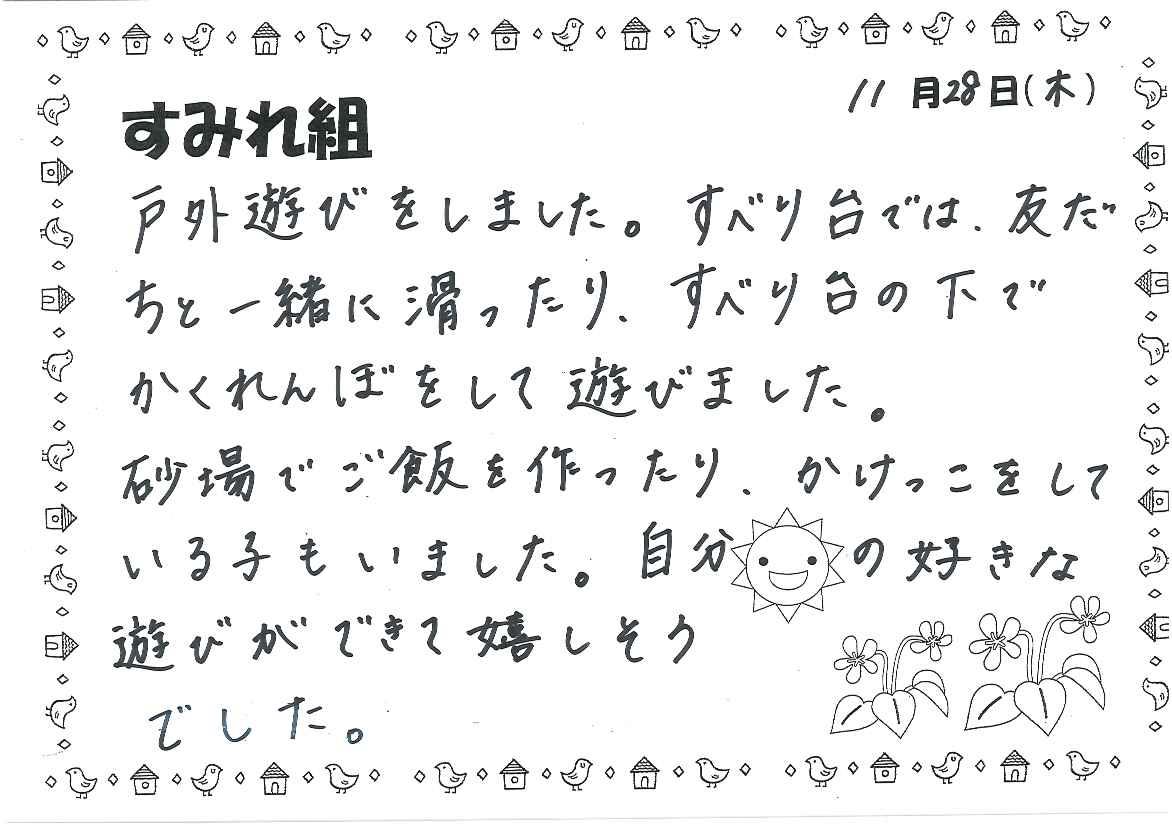 11月28日(木)
すみれ組
戸外遊びをしました。すべり台では、友だ
ちと一緒に滑ったり、すべり台の下で
かくれんぼをして遊びました。
砂場でご飯を作ったり、かけっこをして
いる子もいました。自分の好きな
遊びができて嬉しそう
でした。